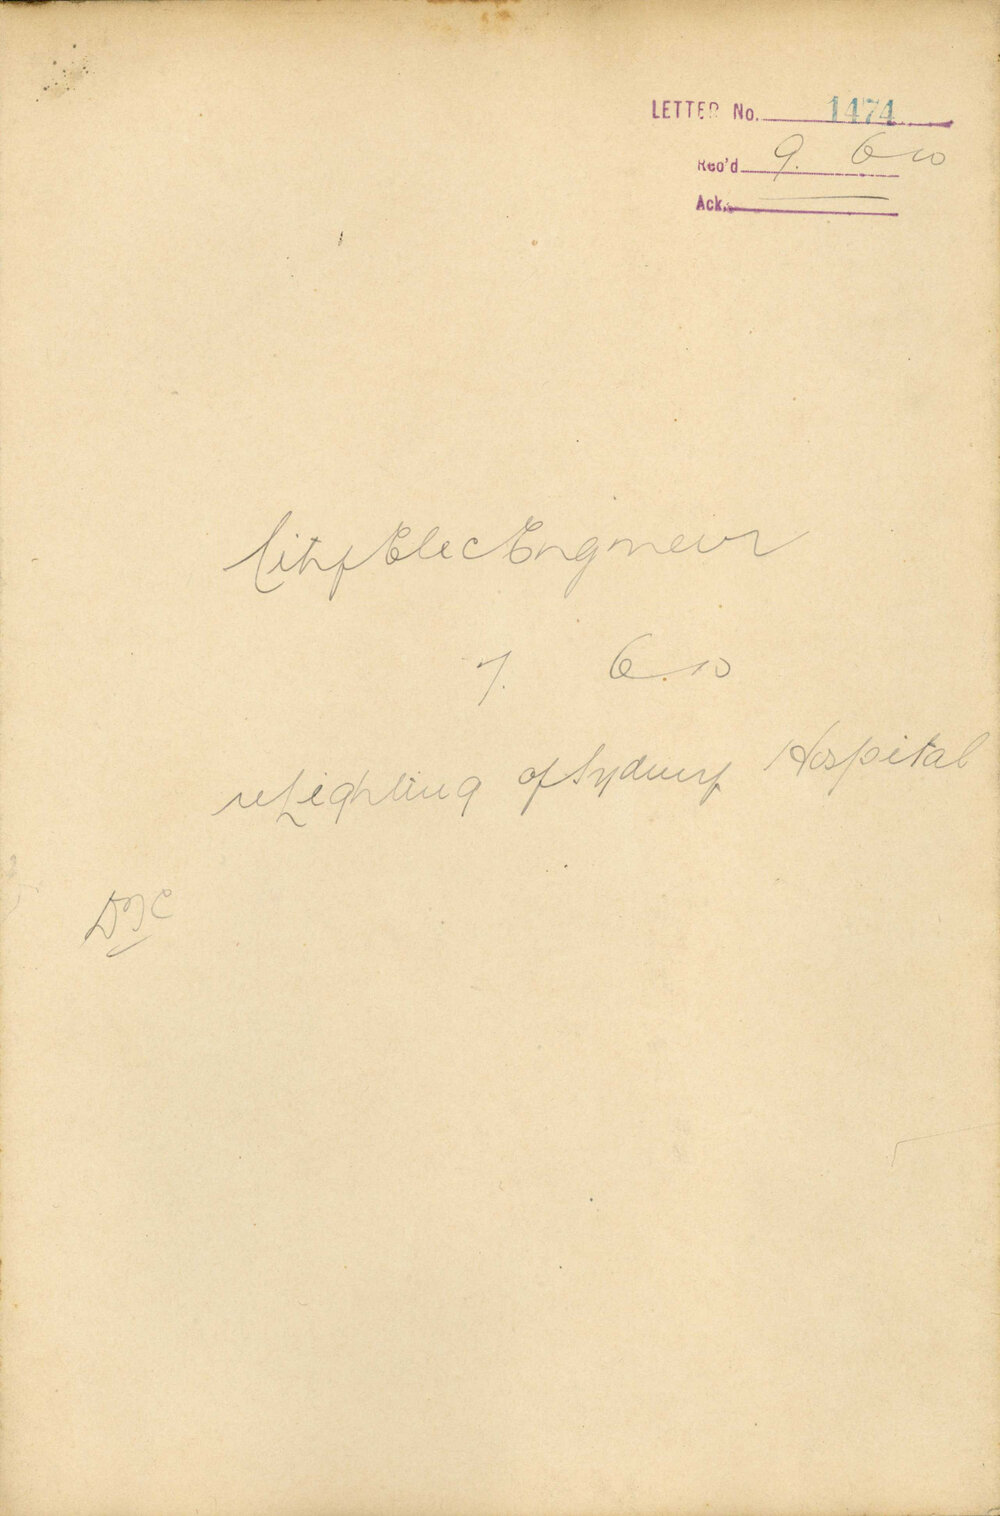 LETTER No. 1474
Rec'd 9. 6 10
Ack.
City Elec Engineer
7. 6. 10
re Lighting of Sydney Hospital